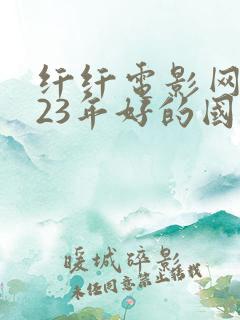 纤纤电影网
23年好的国
暖城碎影
未经同意禁止转载